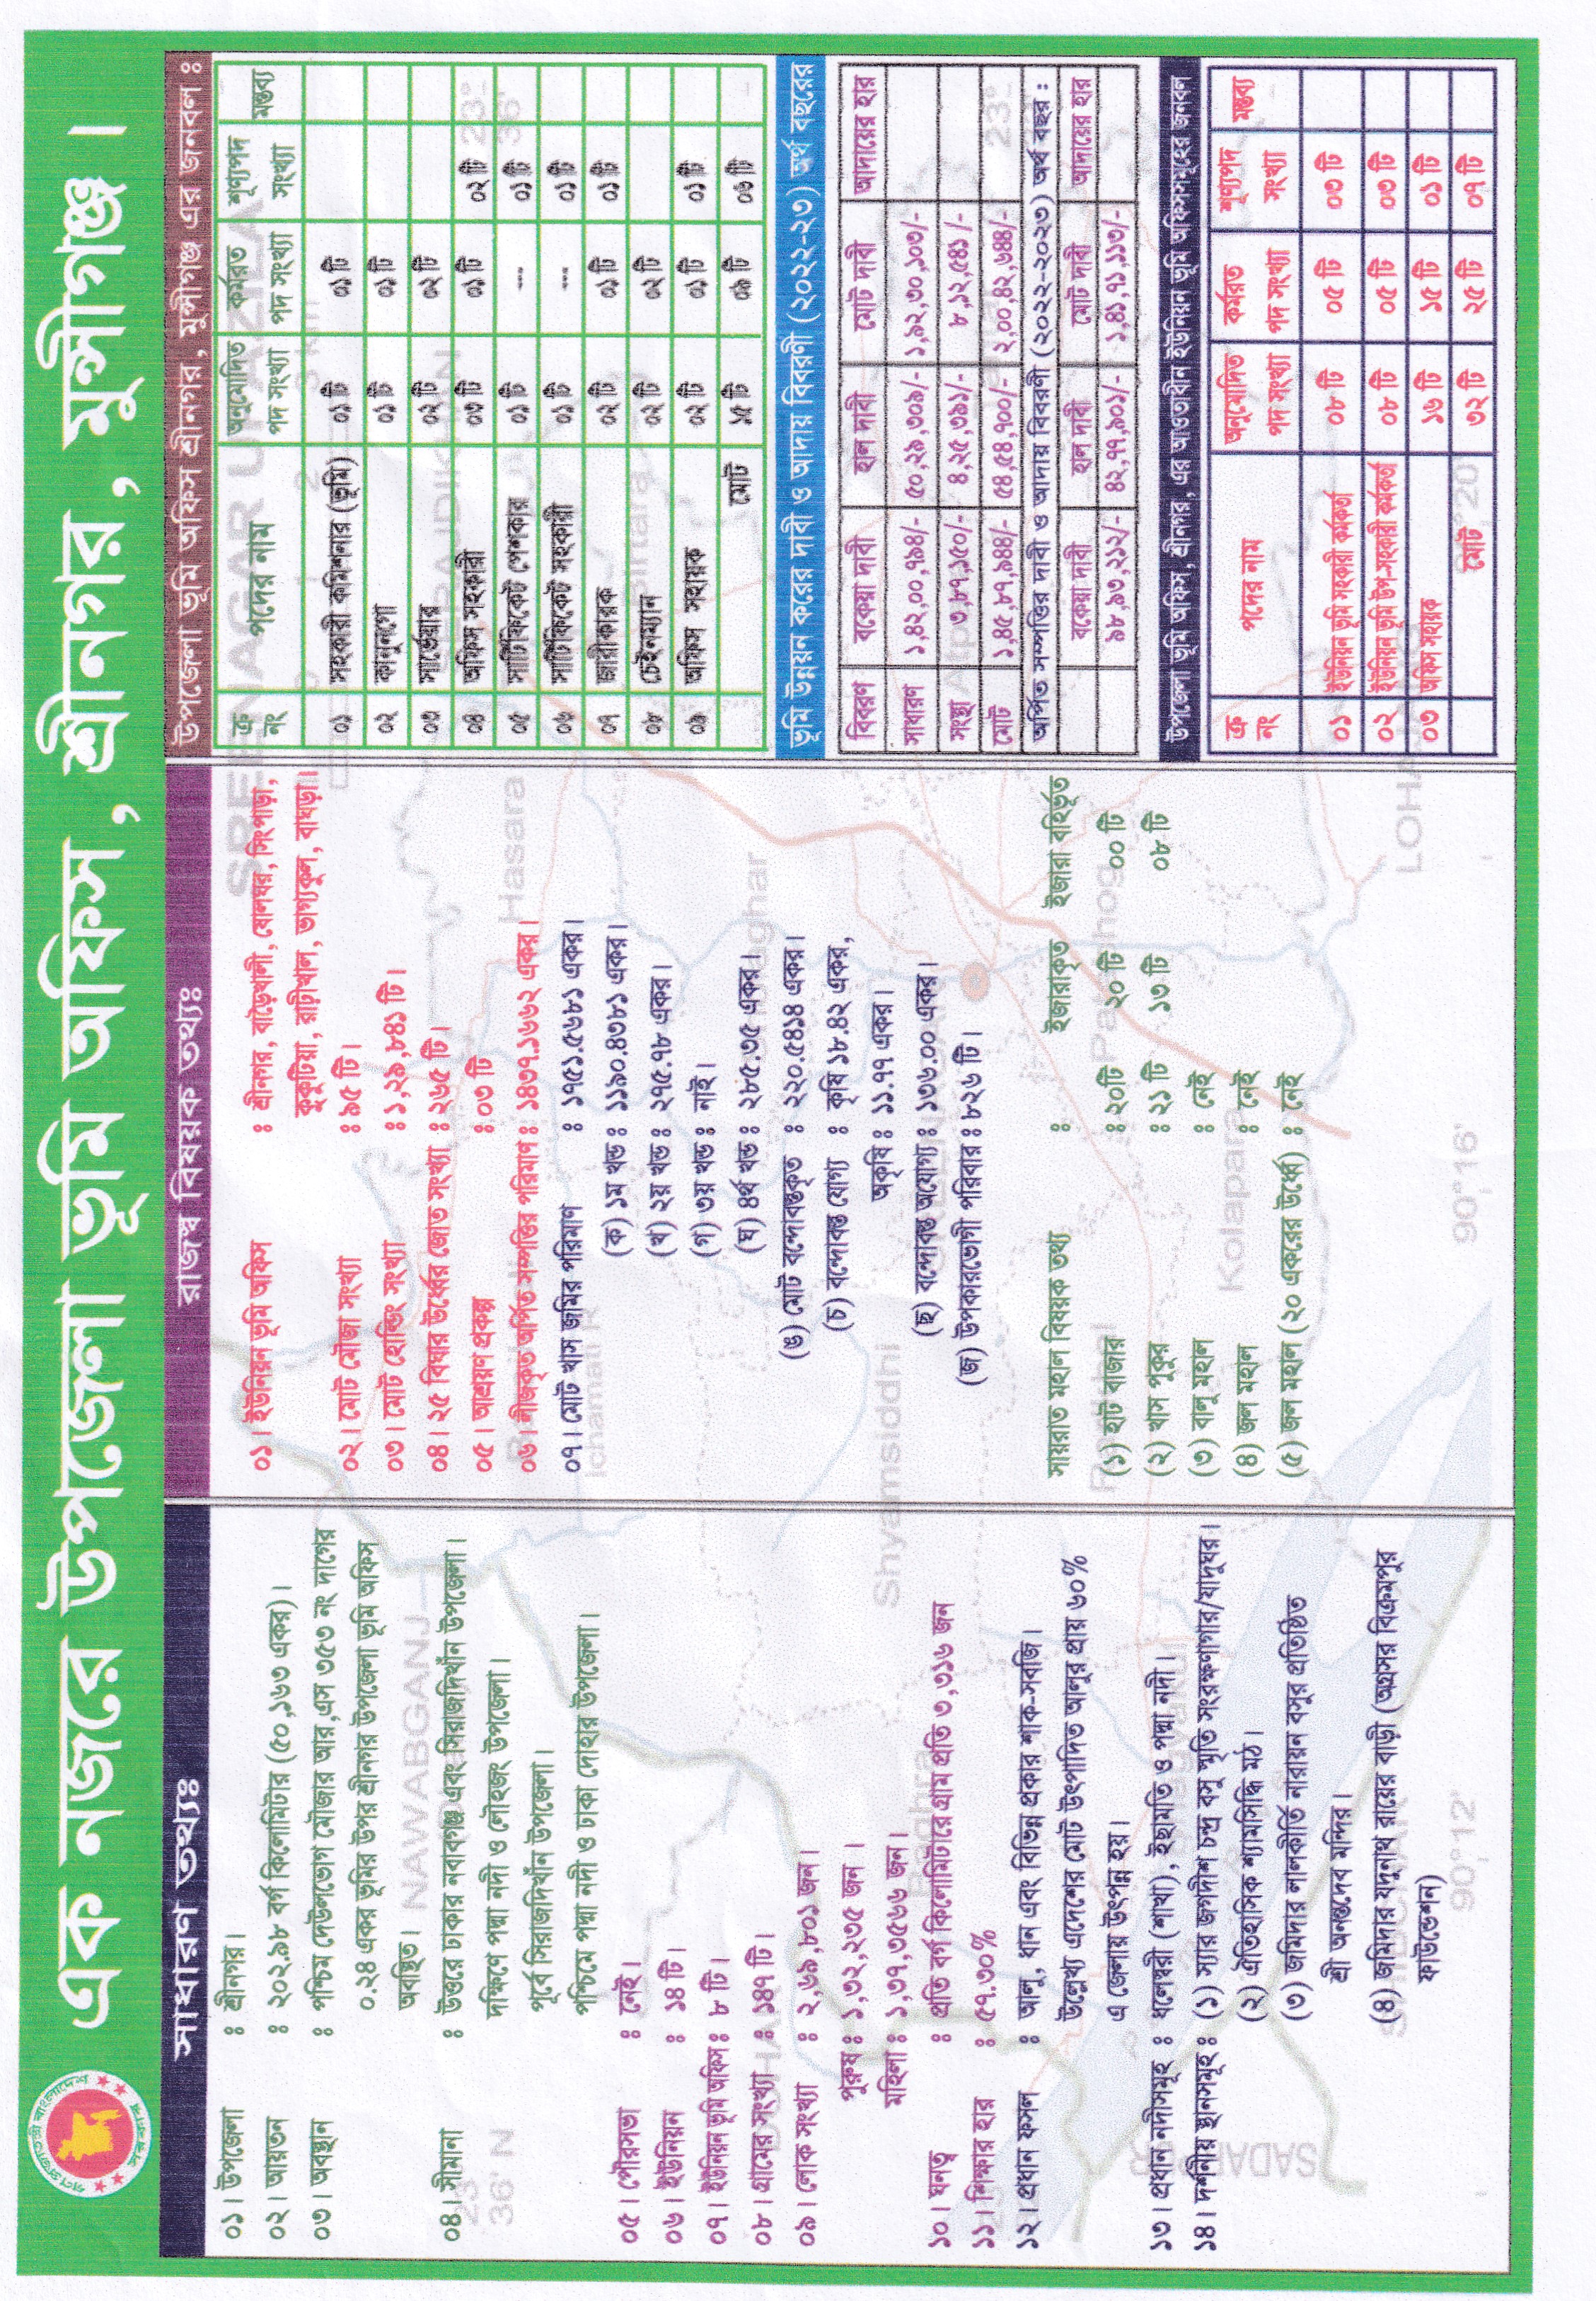 গণপ্রজাতন্ত্রী বাংলাদেশ সরকার
এক নজরে উপজেলা ভূমি অফিস , শ্রীনগর , মুন্সীগঞ্জ ।
সাধারণ তথ্যঃ
০১ । উপজেলা : শ্রীনগর ।
০২ । আয়তন : ২০২.৯৮ বর্গ কিলোমিটার (৫০,১৬৩ একর) ।
০৩ । অবস্থান : পশ্চিম দেউলভোগ মৌজার আর,এস ৩৫৩ নং দাগের
০.২৪ একর ভূমির উপর শ্রীনগর উপজেলা ভূমি অফিস
অবস্থিত ।
০৪ । সীমানা : উত্তরে ঢাকার নবাবগঞ্জ এবং সিরাজদিখাঁন উপজেলা ।
দক্ষিণে পদ্মা নদী ও লৌহজং উপজেলা ।
পূর্বে সিরাজদিখাঁন উপজেলা ।
পশ্চিমে পদ্মা নদী ও ঢাকা দোহার উপজেলা ।
০৫ । পৌরসভা : নেই ।
০৬ । ইউনিয়ন : ১৪ টি ।
০৭ । ইউনিয়ন ভূমি অফিস : ৮ টি ।
০৮ । গ্রামের সংখ্যা : ১৪৭ টি ।
০৯ । লোক সংখ্যা : ২,৬৯,৮০১ জন ।
পুরুষ : ১,৩২,২৩৫ জন ।
মহিলা : ১,৩৭,৩৫৬৬ জন ।
১০ । ঘনত্ব : প্রতি বর্গ কিলোমিটারে গ্রাম প্রতি ৩,৩১৬ জন
১১ । শিক্ষার হার : ৫৭.৩০%
১২ । প্রধান ফসল : আলু , ধান এবং বিভিন্ন প্রকার শাক-সবজি ।
উল্লেখ্য এদেশের মোট উৎপাদিত আলুর প্রায় ৬০%
এ জেলায় উৎপন্ন হয় ।
১৩ । প্রধান নদীসমূহ : ধলেশ্বরী (শাখা) , ইছামতি ও পদ্মা নদী ।
১৪ । দর্শনীয় স্থানসমূহ : (১) স্যার জগদীশ চন্দ্র বসু স্মৃতি সংরক্ষণাগার/যাদুঘর ।
(২) ঐতিহাসিক শ্যামসিদ্ধি মঠ ।
(৩) জমিদার লালকীর্তি নারায়ন বসুর প্রতিষ্ঠিত
শ্রী অনন্তদেব মন্দির ।
(৪) জমিদার যদুনাথ রায়ের বাড়ী (অগ্রসর বিক্রমপুর
ফাউন্ডেশন)
রাজস্ব বিষয়ক তথ্যঃ
০১ । ইউনিয়ন ভূমি অফিস : শ্রীনগর, বাড়ৈখালী, ষোলঘর, সিংপাড়া,
কুকুটিয়া , রাঢ়ীখাল, ভাগ্যকুল, বাঘড়া।
০২ । মোট মৌজা সংখ্যা : ৯৫ টি ।
০৩ । মোট হোল্ডিং সংখ্যা : ১,২৯,৮৪১ টি ।
০৪ । ২৫ বিঘার উর্ধ্বের জোত সংখ্যা : ২৬৫ টি ।
০৫ । আশ্রয়ণ প্রকল্প : ০৩ টি
০৬ । লীজকৃত অর্পিত সম্পত্তির পরিমাণ : ১৪৩৭.১৬৬২ একর ।
০৭ । মোট খাস জমির পরিমাণ : ১৭৫১.৫৬৮১ একর ।
(ক) ১ম খন্ড : ১১৯০.৪৩৮১ একর ।
(খ) ২য় খন্ড : ২৭৫.৭৮ একর ।
(গ) ৩য় খন্ড : নাই ।
(ঘ) ৪র্থ খন্ড : ২৮৫.৩৫ একর ।
(ঙ) মোট বন্দোবস্তকৃত : ২২০.৫৪১৪ একর ।
(চ) বন্দোবস্ত যোগ্য : কৃষি ১৮.৪২ একর,
অকৃষি : ১১.৭৭ একর ।
(ছ) বন্দোবস্ত অযোগ্য : ১৩৬.০০ একর ।
(জ) উপকারভোগী পরিবার : ৮২৬ টি ।
সায়রাত মহাল বিষয়ক তথ্য : ইজারাকৃত ইজারা বহির্ভূত
(১) হাট বাজার : ২০টি ২০ টি ০০ টি
(২) খাস পুকুর : ২১ টি ১৩ টি ০৮ টি
(৩) বালু মহাল : নেই
(৪) জল মহাল : নেই
(৫) জল মহাল (২০ একরের উর্ধ্বে) : নেই
উপজেলা ভূমি অফিস শ্রীনগর, মুন্সীগঞ্জ এর জনবল :
ক্র নং পদের নাম অনুমোদিত পদ সংখ্যা কর্মরত পদ সংখ্যা শূণ্যপদ সংখ্যা মন্তব্য
০১ সহকারী কমিশনার (ভূমি) ০১ টি ০১ টি
০২ কানুনগো ০১ টি ০১ টি
০৩ সার্ভেয়ার ০২ টি ০২ টি
০৪ অফিস সহকারী ০৩ টি ০১ টি ০২ টি
০৫ সার্টিফিকেট পেশকার ০১ টি --- ০১ টি
০৬ সার্টিফিকেট সহকারী ০১ টি --- ০১ টি
০৭ জারীকারক ০২ টি ০১ টি ০১ টি
০৮ চেইনম্যান ০২ টি ০২ টি
০৯ অফিস সহায়ক ০২ টি ০১ টি ০১ টি
মোট ১৫ টি ০৯ টি ০৬ টি
ভূমি উন্নয়ন করের দাবী ও আদায় বিবরণী (২০২২-২৩) অর্থ বছরের
বিবরণ বকেয়া দাবী হাল দাবী মোট দাবী আদায়ের হার
সাধারণ ১,৪২,০০,৭৯৪/- ৫০,২৯,৩০৯/- ১,৯২,৩০,১০৩/-
সংস্থা ৩,৮৭,১৫০/- ৪,২৫,৩৯১/- ৮,১২,৫৪১ /-
মোট ১,৪৫,৮৭,৯৪৪/- ৫৪,৫৪,৭০০/- ২,০০,৪২,৬৪৪/-
অর্পিত সম্পত্তির দাবী ও আদায় বিবরণী (২০২২-২০২৩) অর্থ বছর :
বকেয়া দাবী হাল দাবী মোট দাবী আদায়ের হার
৯৮,৯৩,২১২/- ৪২,৭৭,৯০১/- ১,৪১,৭১,১১৩/-
উপজেলা ভূমি অফিস, শ্রীনগর, এর আওতাধীন ইউনিয়ন ভূমি অফিসসমূহের জনবল
ক্র নং পদের নাম অনুমোদিত পদ সংখ্যা কর্মরত পদ সংখ্যা শূণ্যপদ সংখ্যা মন্তব্য
০১ ইউনিয়ন ভূমি সহকারী কর্মকর্তা ০৮ টি ০৫ টি ০৩ টি
০২ ইউনিয়ন ভূমি উপ-সহকারী কর্মকর্তা ০৮ টি ০৫ টি ০৩ টি
০৩ অফিস সহায়ক ১৬ টি ১৫ টি ০১ টি
মোট ৩২ টি ২৫ টি ০৭ টি
SREENAGAR UPAZILA
NAWABGANJ
Hasara
Shyamsiddhi
Kolapara
90°16'
90°12'